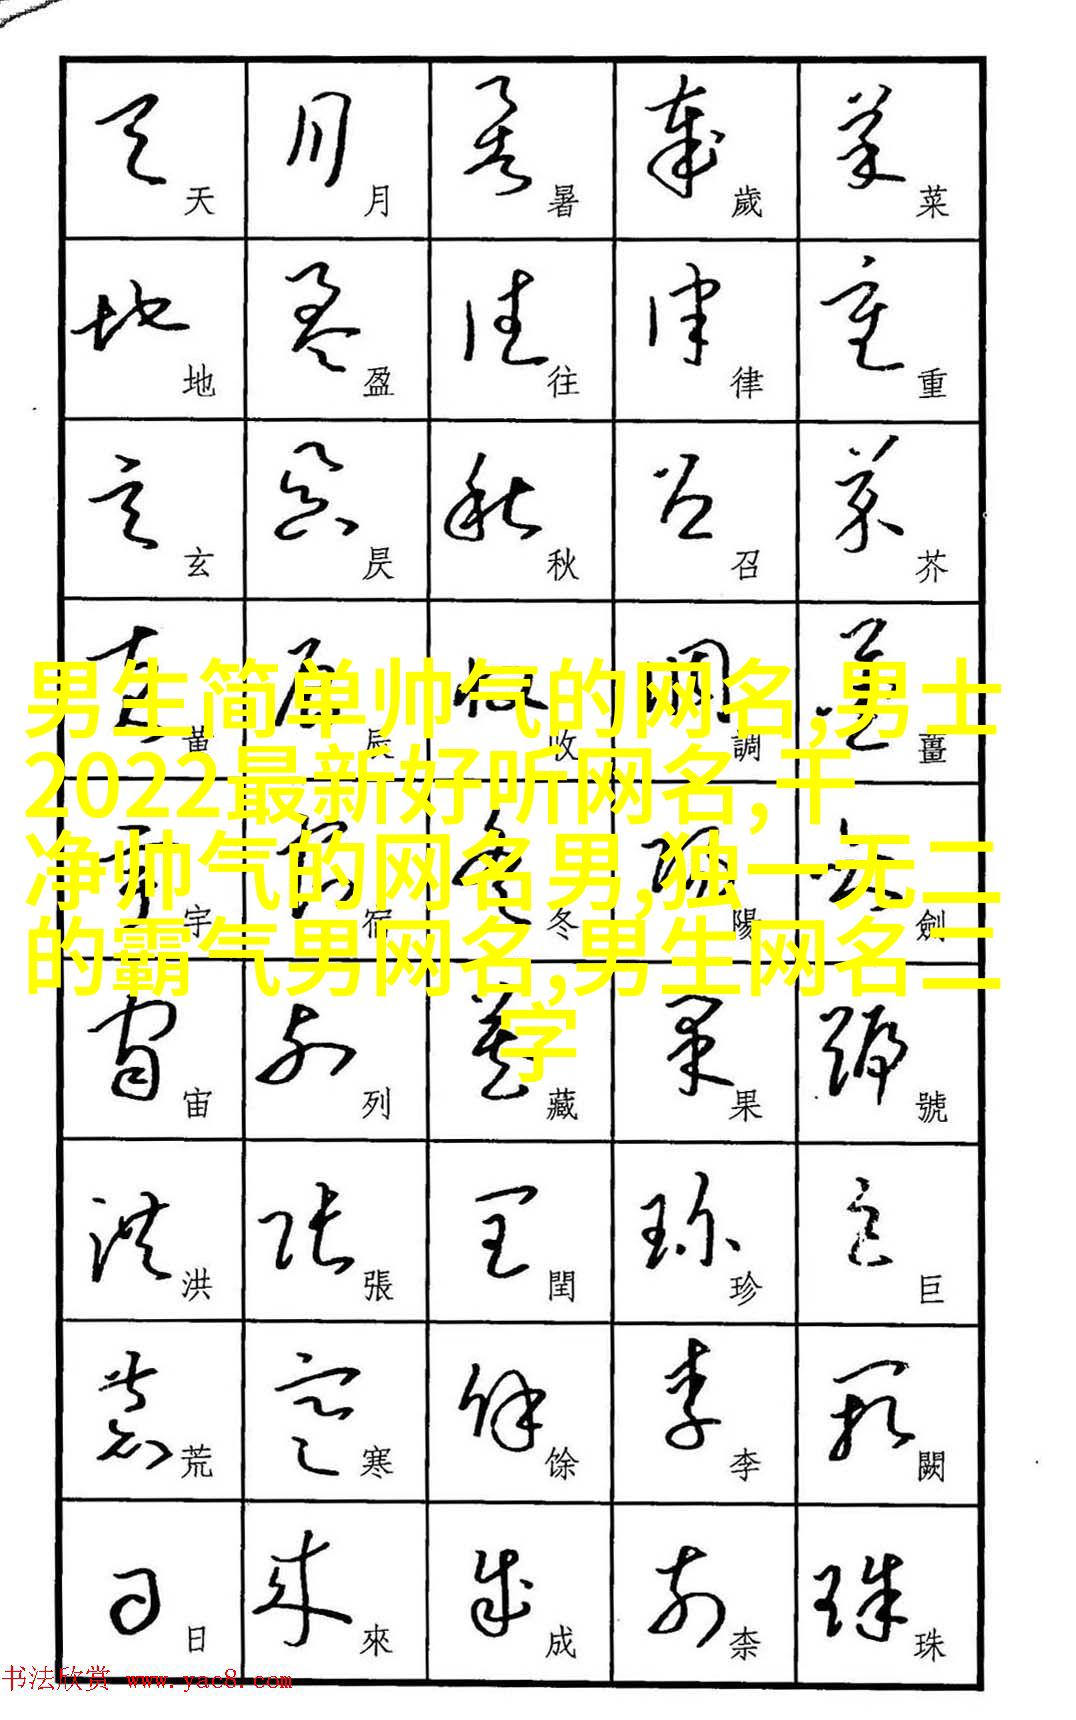 天地玄黃宇宙洪荒日
月盈昃辰宿列張寒來
暑往秋收冬藏閏馀成
歲律召調陽果珍李柰
菜重芥薑劍號巨闕珠
男生简单帅气的网名,男士
2022最新好听网名,干
净帅气的网名男,独一无二
的霸气男网名,男生网名二
字
书法欣赏 www.yac8.com